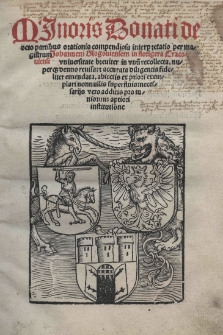 MInoris Donati de
octo partibus orationis compendiosa interpretatio per ma
gistrum Johannem Glogouiensem in florigera Craco
uiensi vniuersitate breuiter in vnum recollecta. nu
per denuo reuisa et accurata diligentia fide
liter emendata, abiectis ex priori exem
plari nonnullis superfluis necessa
rijs vero additis pro iu
niorum aptiori
institutione